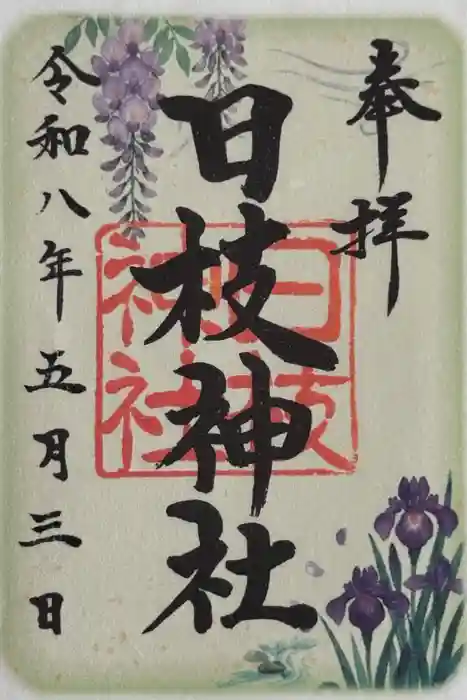 奉拝
日枝神社
日枝神社
令和八年五月三日